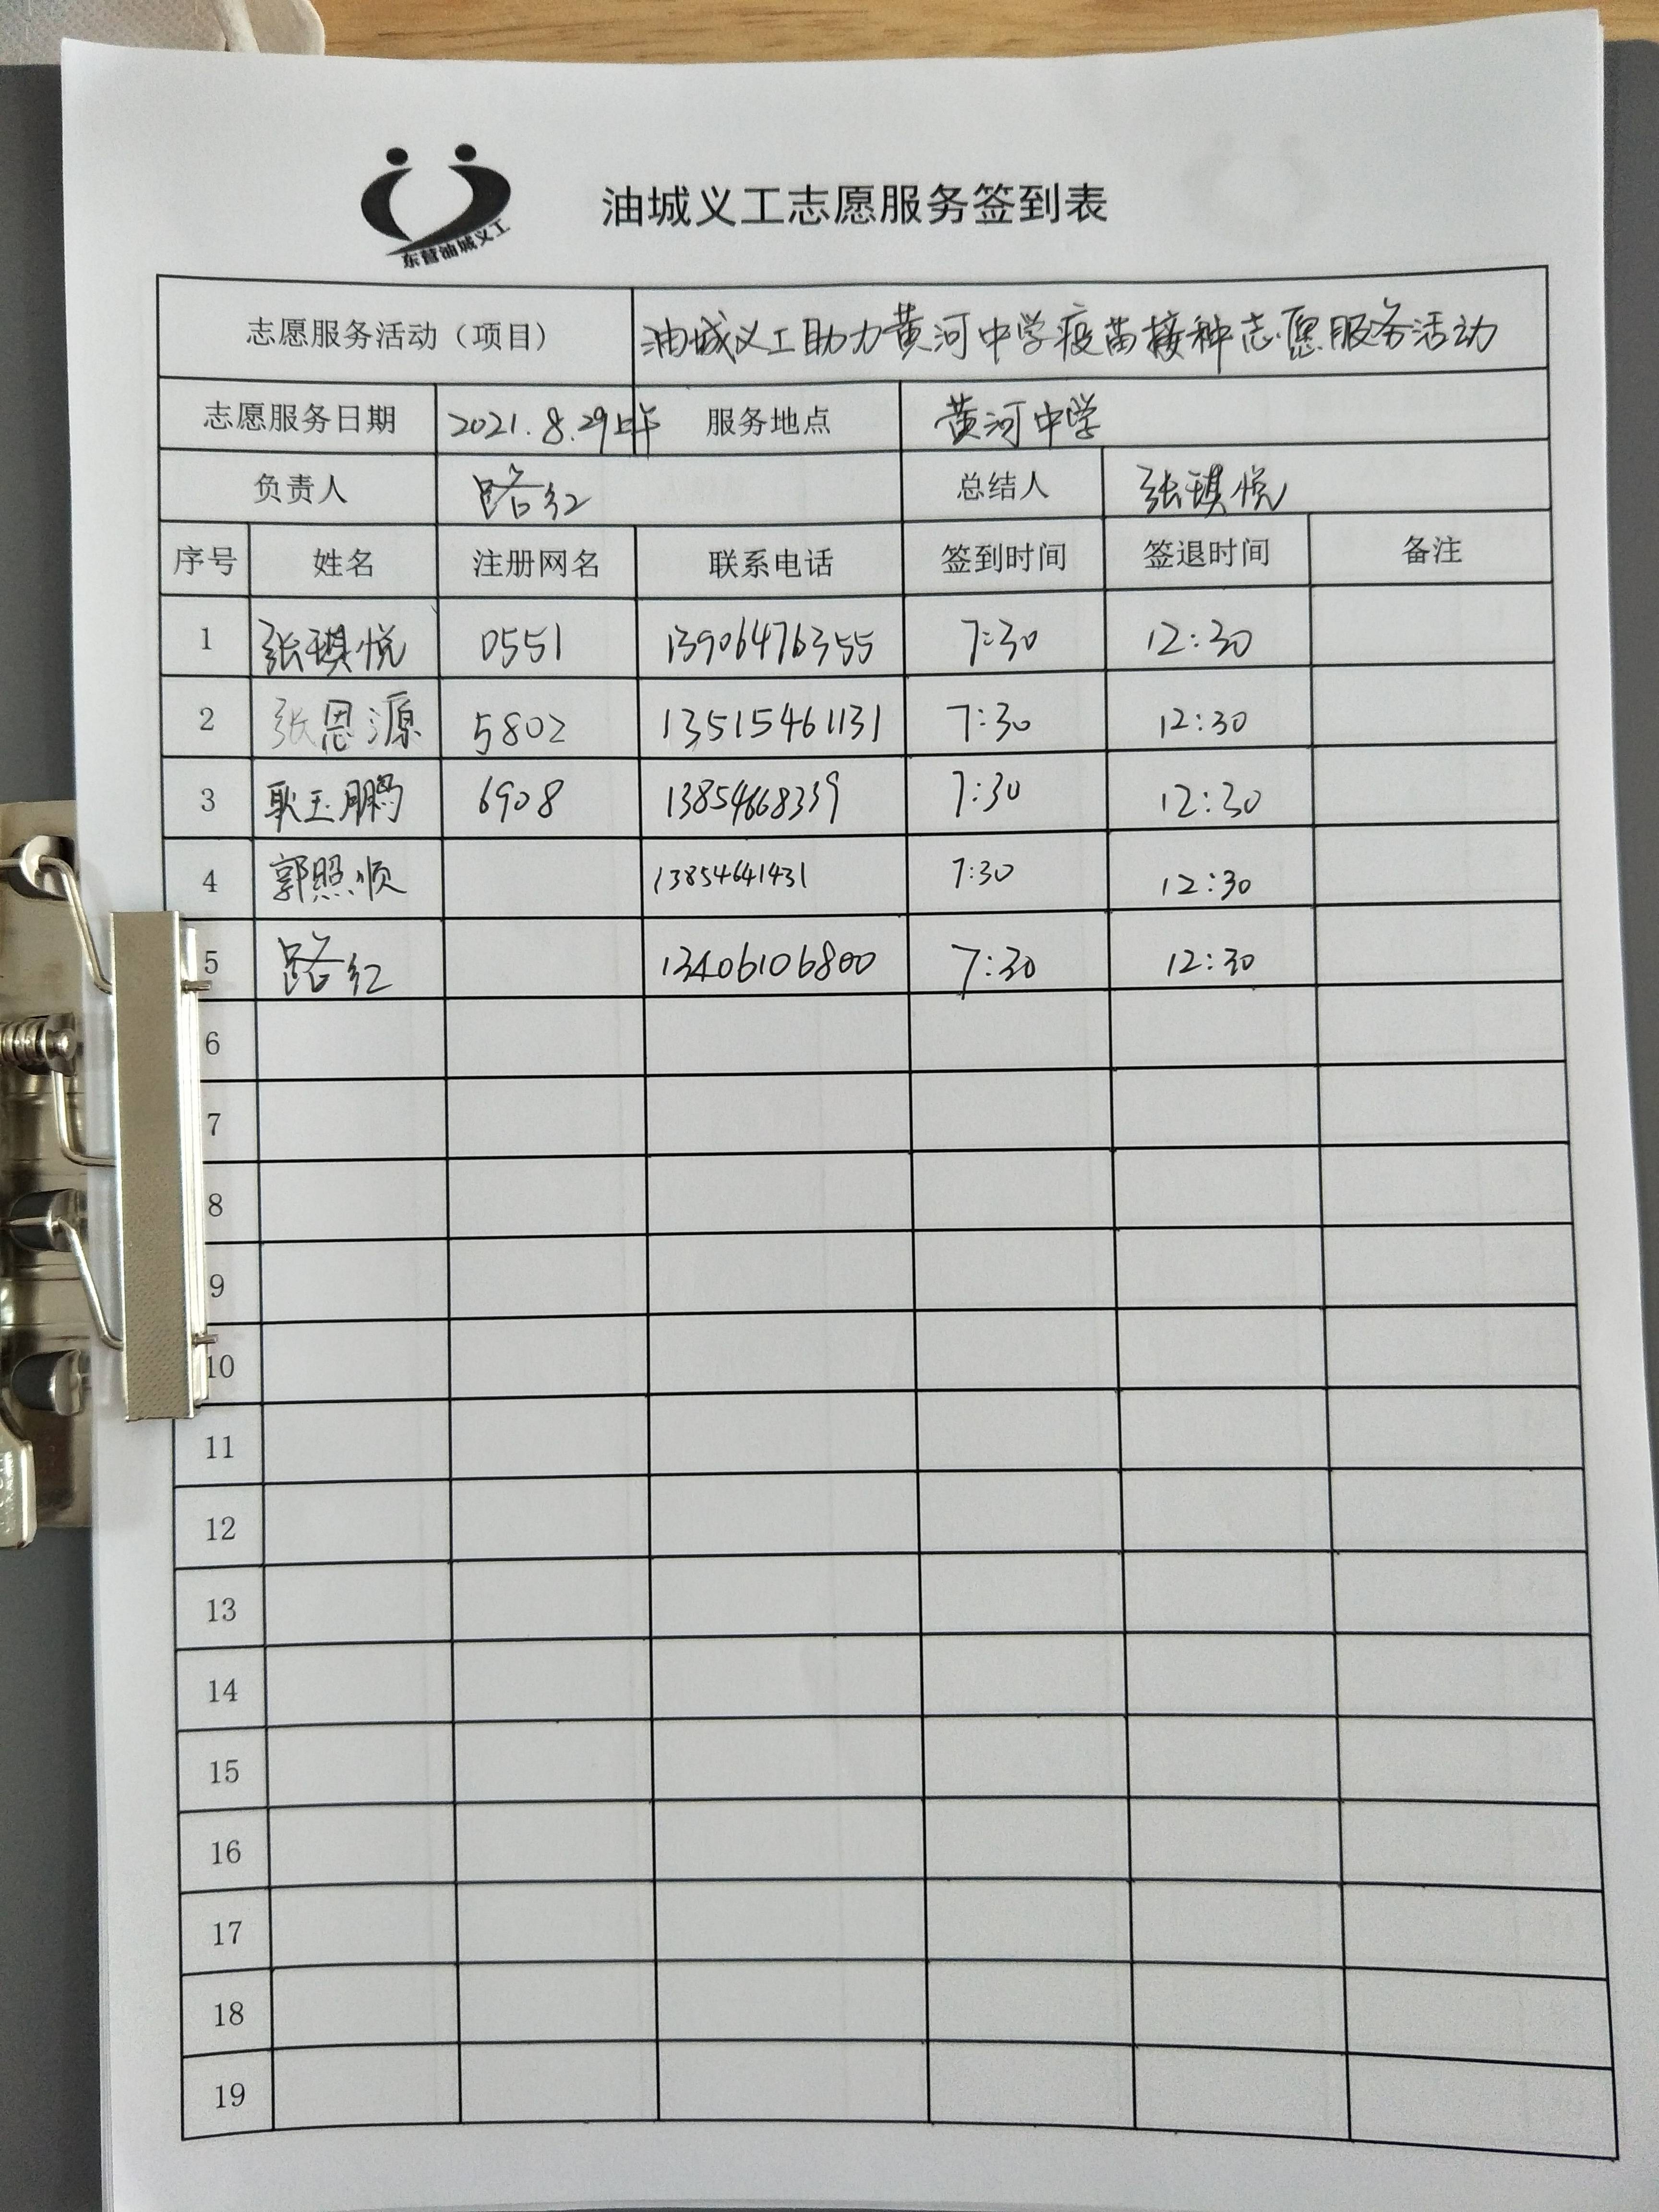 东营油城义工
油城义工志愿服务签到表
志愿服务活动（项目） 油城义工助力黄河中学疫苗接种志愿服务活动
志愿服务日期 2021.8.29上午 服务地点 黄河中学
负责人 路红 总结人 张琪悦
序号 姓名 注册网名 联系电话 签到时间 签退时间 备注
1 张琪悦 0551 13906476355 7:30 12:30
2 张恩源 5802 13515461131 7:30 12:30
3 耿玉鹏 6908 13854668339 7:30 12:30
4 郭照顺 13854641431 7:30 12:30
5 路红 13406106800 7:30 12:30
6
7
8
9
10
11
12
13
14
15
16
17
18
19